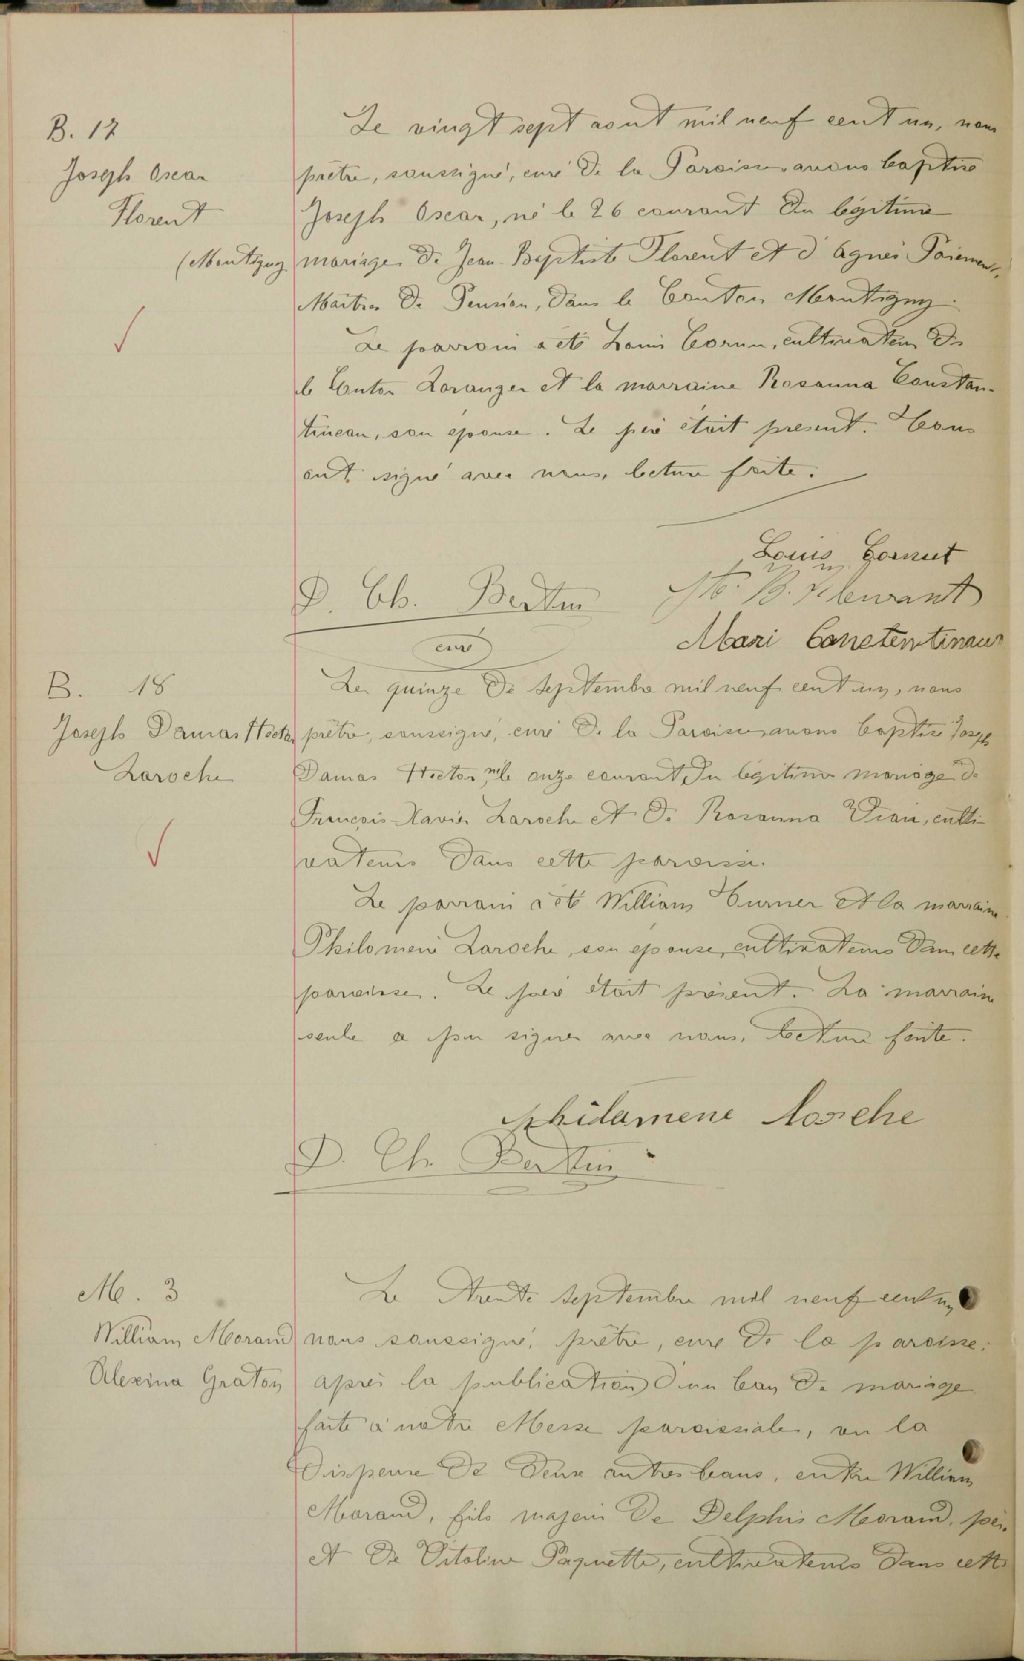 B. 17
Joseph Oscar
Florent
(Montigny
Le vingt sept aout mil neuf cent un, nous
prêtre, soussigné, curé de la Paroisse avons baptisé
Joseph Oscar, né le 26 courant du légitime
mariage de Jean-Baptiste Florent et d'Agnès Paiement,
Maitres de Pension, dans le Canton Montigny.
Le parrain a été Louis Cornu, cultivateur de
le Canton Loranger et la marraine Rosanna Constan-
tineau, son épouse. Le père était present. Tous
ont signé avec nous, lecture faite.
Louis Cornut
D. Ch. Bertin
curé
B.
Mari
B. 18
Joseph Damas Hector
Laroche
Le quinze de Septembre mil neuf cent un, nous
prêtre, soussigné, curé de la Paroisse avons baptisé Joseph
Damas Hector, né le onze courant, du légitime mariage de
François-Xavier Laroche et de Rosanna Viau, culti-
vateurs dans cette paroisse.
Le parrain a été William Turner et la marraine
Philomène Laroche, son épouse, cultivateurs dans cette
paroisse. Le père était présent. La marraine
seule a pu signer avec nous, lecture faite.
philamene
D. Ch. Bertin
M. 3
William Morand
Alexina Graton
Le trente septembre mil neuf cent un
nous soussigné, prêtre, curé de la paroisse,
après la publication d'un ban de mariage
faite à notre Messe paroissiale, vu la
dispense de deux autres bans, entre William
Morand, fils majeur de Delphis Morand, père
et de Vitaline Paquette, cultivateurs dans cette